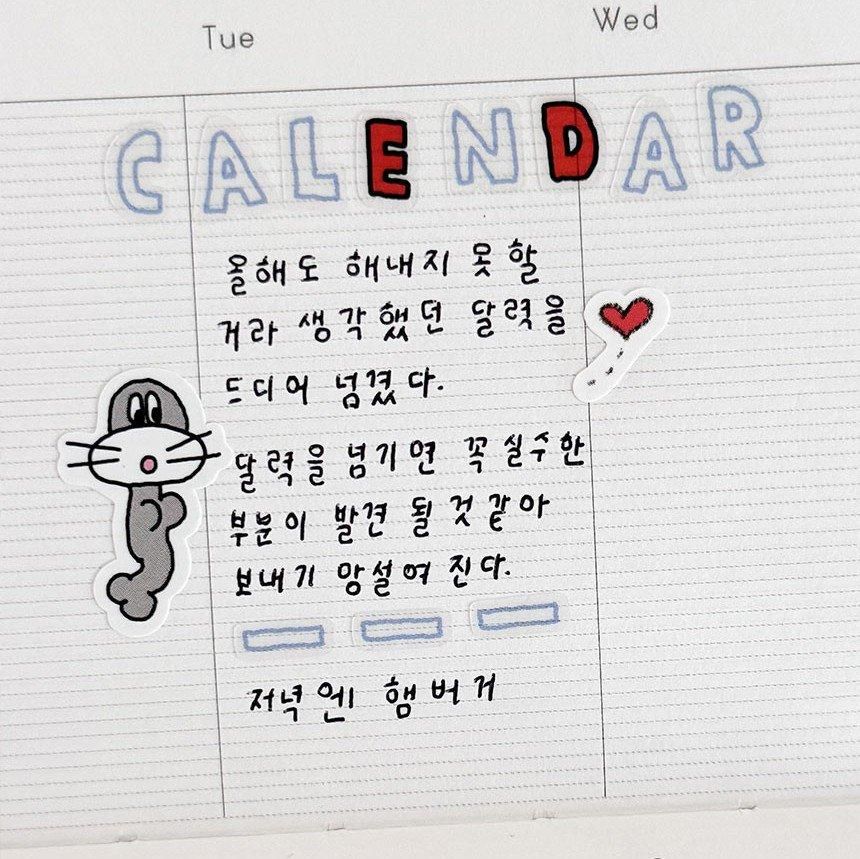 Tue Wed
CALENDAR
올해도 해내지 못 할
거라 생각했던 달력을
드디어 넘겼다.
달력을 넘기면 꼭 실수한
부분이 발견 될 것 같아
보내기 망설여 진다.
저녁엔 햄버거